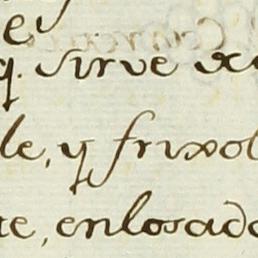 e
q. sirve
le, y frixol
te, enlosado